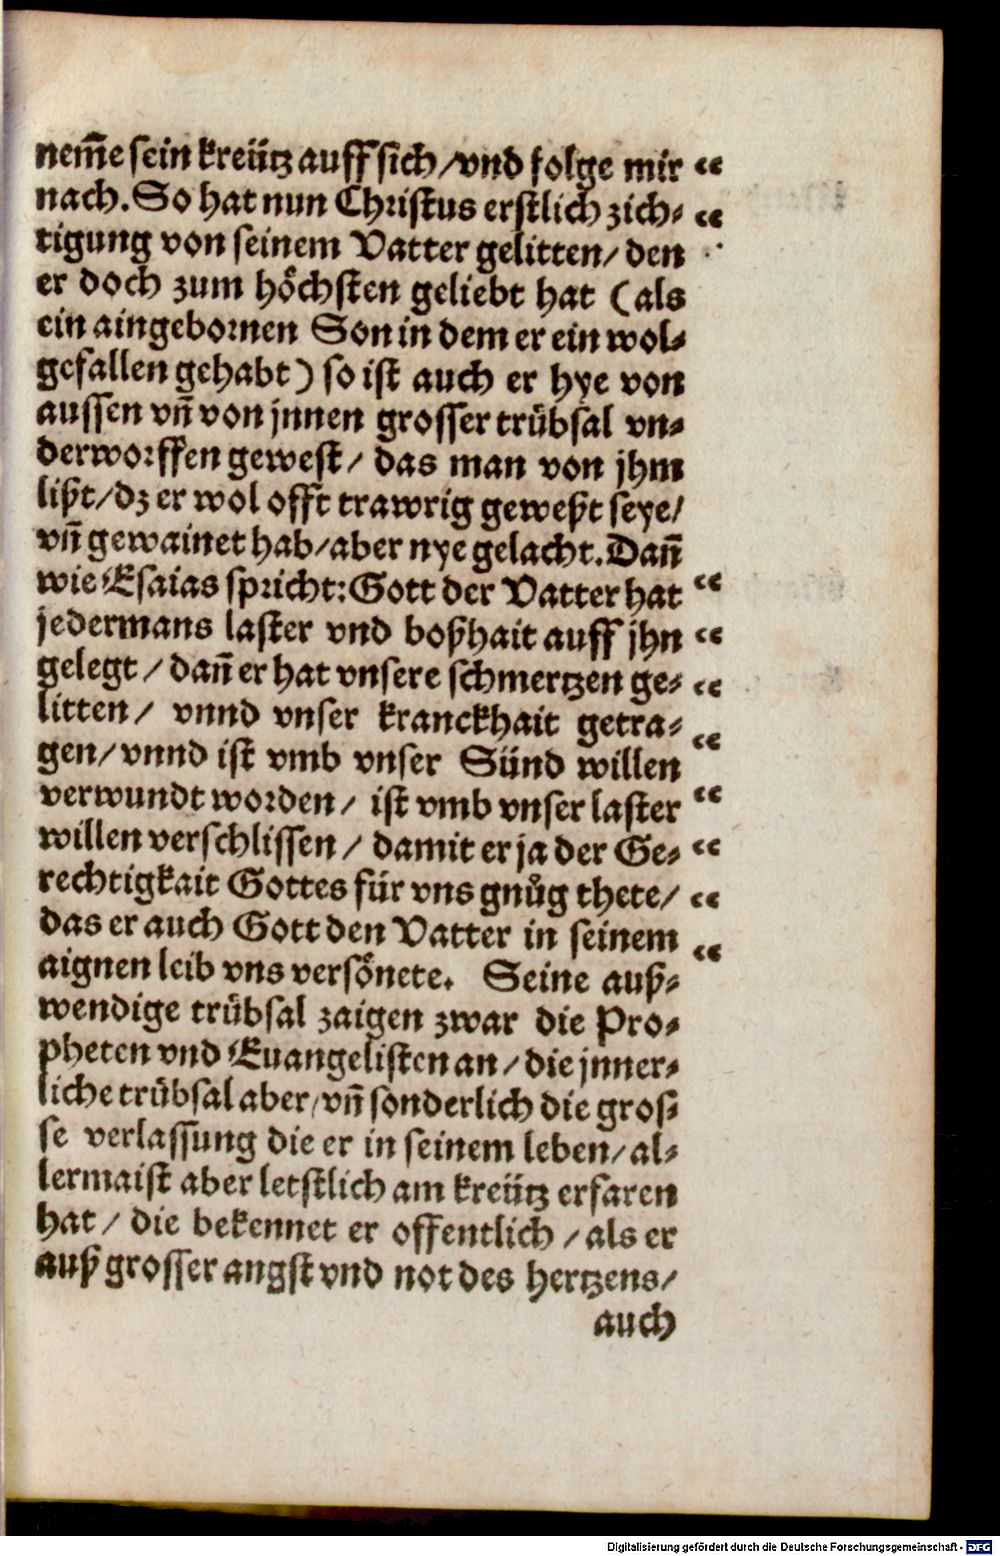 nem̃e sein kreütz auff sich / vnd folge mir “
nach. So hat nun Christus erstlich zich⸗ “
tigung von seinem Vatter gelitten / den
er doch zum hoͤchsten geliebt hat (als
ein aingebornen Son in dem er ein wol⸗
gefallen gehabt) so ist auch er hye von
aussen vñ von jnnen grosser truͤbsal vn⸗
derworffen gewest / das man von jhm
lißt / dz er wol offt trawrig geweßt seye /
vñ gewainet hab / aber nye gelacht. Dañ
wie Esaias spricht: Gott der Vatter hat “
jedermans laster vnd boßhait auff jhn “
gelegt / dañ er hat vnsere schmertzen ge⸗ “
litten / vnnd vnser kranckhait getra⸗ “
gen / vnnd ist vmb vnser Sünd willen
verwundt worden / ist vmb vnser laster “
willen verschlissen / damit er ja der Ge⸗ “
rechtigkait Gottes für vns gnuͦg thete / “
das er auch Gott den Vatter in seinem “
aignen leib vns versoͤnete. Seine auß⸗
wendige truͤbsal zaigen zwar die Pro⸗
pheten vnd Euangelisten an / die jnner⸗
liche truͤbsal aber / vñ sonderlich die gros⸗
se verlassung die er in seinem leben / al⸗
lermaist aber letstlich am kreütz erfaren
hat / die bekennet er offentlich / als er
auß grosser angst vnd not des hertzens /
auch
Digitalisierung gefördert durch die Deutsche Forschungsgemeinschaft - DFG